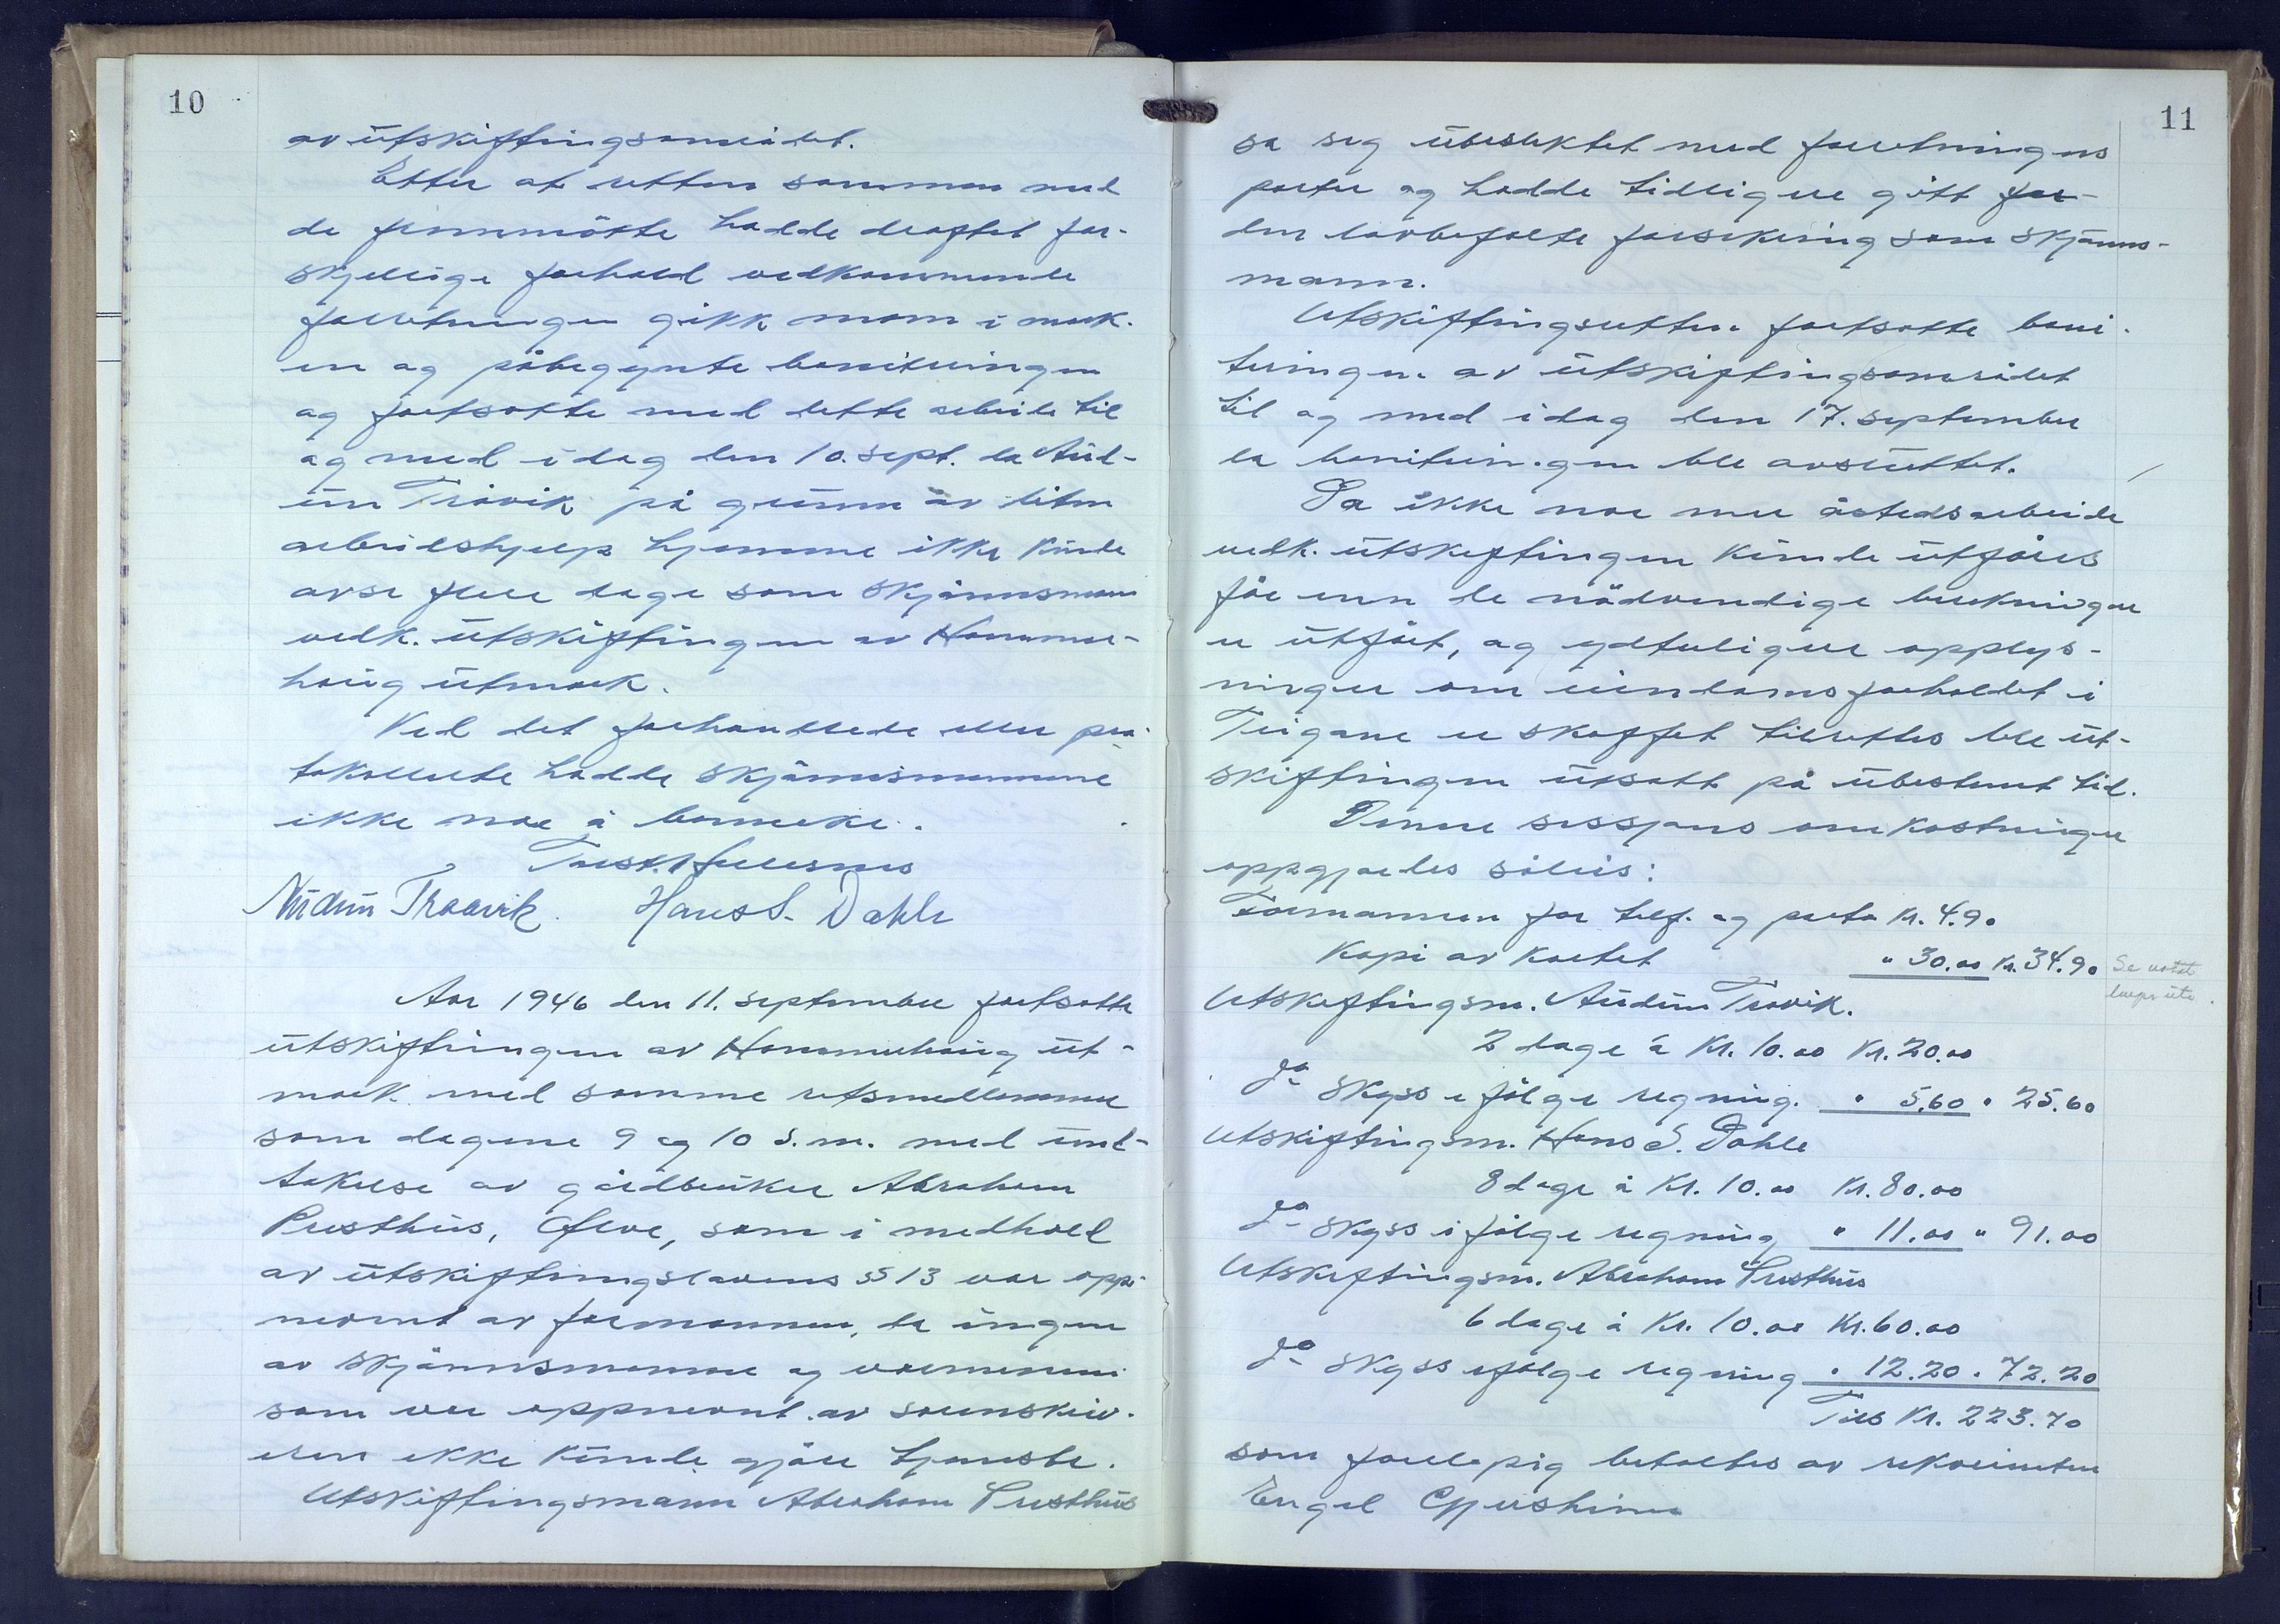 10
av utskiftingsområdet.
Etter at retten sammen med
de frammötte hadde drøftet for-
skjellige forhold vedkommende
forretningen gikk man i mark-
en og påbegynte boniteringen
og fortsatte med dette arbeide til
og med idag den 10. sept. da Aud-
un Tråvik på grunn av liten
arbeidshjelp hjemme ikke kunde
avse flere dage som skjønnsmann
vedk. utskiftingen av Hammer-
haug utmark.
Ved det forhandlede eller pro-
tokollerte hadde skjønnsmennene
ikke noe å bemerke.
Audun Traavik. Hans S. Dahle
Aar 1946 den 11. september fortsatte
utskiftningen av Hammerhaug ut-
mark med samme retsmedlemmer
som dagene 9 og 10 s.m. med und-
takelse av gårdbruker Abraham
Presthus, Ølve, som i medhold
av utskiftningslovens §§ 13 var opp-
nevnt av formannen, da ingen
av skjønnsmennene og varmennene
som var oppnevnt av sorenskriv-
eren ikke kunde gjøre tjeneste.
Utskiftingsmann Abraham Presthus
11
sa seg ubesluktet med forretningens
parter og hadde tidligere gitt for-
den lovbefalte forsikring som skjønns-
mann.
Utskiftingsretten fortsatte boni-
teringen av utskiftingsområdet
til og med idag den 17. september
da boniteringen ble avsluttet.
Da ikke noe mer åstedsarbeide
vedk. utskiftingen kunde utføres
før enn de nödvendige beregninger
er utført, og ydterligere opplys-
ninger om eiendomsforholdet i
Teigane er skaffet tilrettes ble ut-
skiftingen utsatt på ubestemt tid.
Denne sessjons omkostninger
oppgjordes således:
Formannen for telf. og porto Kr. 4.90
Kopi av kartet " 30.00 Kr. 34.90
Se notat
Utskiftingsm. Audun Travik.
2 dage á Kr. 10.00 Kr. 20.00
do skyss i følge regning. " 5.60 " 25.60
Utskiftingsm. Hans S. Dahle
8 dage á Kr. 10.00 Kr. 80.00
do skyss i følge regning " 11.00 " 91.00
Utskiftingsm. Abraham Presthus
6 dage á Kr. 10.00 Kr. 60.00
do skyss ifølge regning " 12.20 " 72.20
Tils Kr. 223.70
som foreløpig betaltes av rekvirenten
Engel Gjersheim